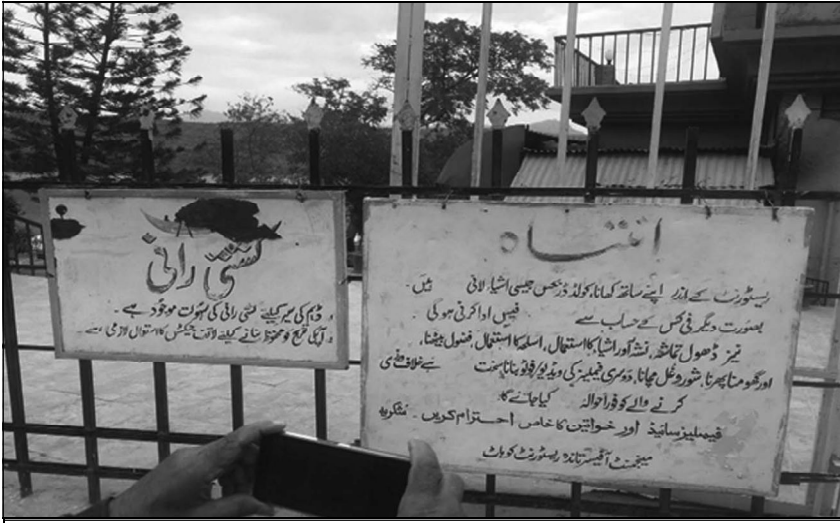 کشتی رانی
ڈیم کی سیر کیلئے کشتی رانی کی سہولت موجود ہے۔
آپکی تفریح کو محفوظ بنانے کیلئے لائف جیکٹس کا استعمال لازمی ہے۔
انتباہ
ریسٹورنٹ کے اندر اپنے ساتھ کھانا، کولڈ ڈرنکس جیسی اشیاء لانی ہیں۔
بصورت دیگر فی کس کے حساب سے فیس ادا کرنی ہوگی۔
نیز ڈھول تماشہ، نشہ آور اشیا کا استعمال، اسلحہ کا استعمال، فضول بیٹھنا،
اور گھومنا پھرنا، شوروغل مچانا، دوسری فیملیز کی ویڈیو/فوٹو بنانا سخت ہے خلاف ورزی
کرنے والے کو فوراً حوالہ کیا جائے گا۔
فیملیز سائیڈ اور خواتین کا خاص احترام کریں۔ شکریہ
مینجمنٹ آفیسر تاندہ ریسٹورنٹ کوہاٹ